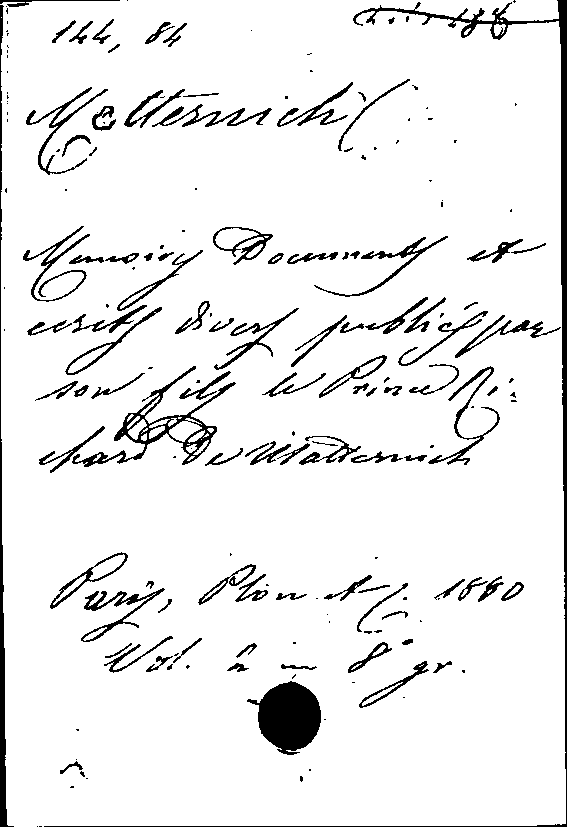 144, 84
Metternich (
Memoires Documents et
ecrits divers publiés par
son fils le Prince Ri-
chard De Metternich
Paris, Plon et C. 1880
Vol. 2 in 8° gr.